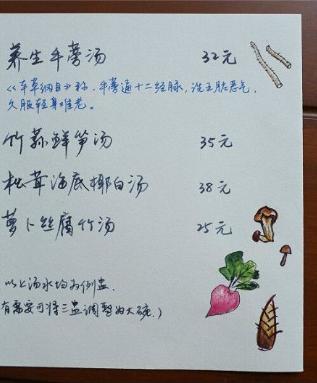 养生牛蒡汤 32元
《本草纲目》称，牛蒡通十二经脉，洗五脏恶气，
久服轻身难老。
竹荪鲜笋汤 35元
松茸海底椰白汤 38元
萝卜丝腐竹汤 25元
以上汤水均为例盅．
有需要可将三盅调整为大碗．）